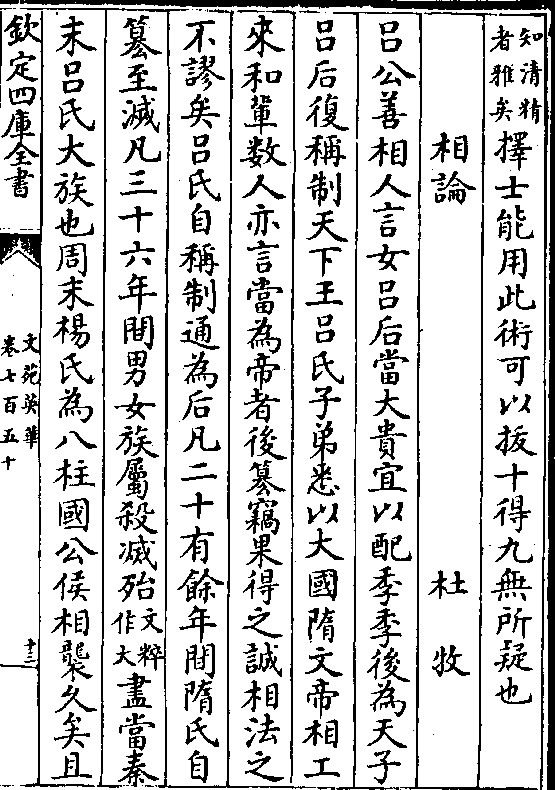 知清精
者雅矣
擇士能用此術可以拔十得九無所疑也
相論 杜牧
呂公善相人言女呂后當大貴宜以配季季後為天子
呂后復稱制天下王呂氏子弟悉以大國隋文帝相工
來和輩數人亦言當為帝者後篡竊果得之誠相法之
不謬矣呂氏自稱制通為后凡二十有餘年間隋氏自
篡至滅凡三十六年間男女族屬殺滅殆
文粹
作大
盡當秦
末呂氏大族也周末楊氏為八柱國公侯相襲久矣且
欽定四庫全書
文苑英華
卷七百五十
十三